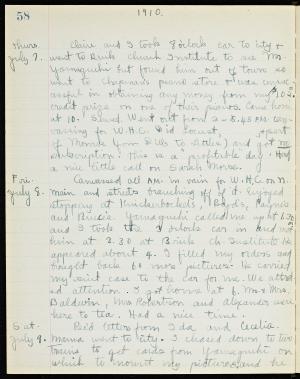 58
1910.
Thurs. July 7.
Claire and I took 8 o'clock car to city &
went to Brick Church Institute to see Mr.
Yamaguchi but found him out of town so
went to Chapman's piano store & was
in obtaining any money from my $102.
credit prize on one of their pianos. Came home
at 10. Went out from 2 - 5.45 P.M.
for W.H.C. Did Locust,
of Monroe (from Ellis to Little) and got
subscription. This is a profitable day. Had
a nice little call on Sarah Morse.
Fri. July 8.
Canvassed all A.M. in vain for W.H.C. on N.
Main and streets branching off of it. Enjoyed
stopping at Knickerbocker's, Rhoads, Payne's
and Bruce. Yamaguchi called me up at 1.30
and I took the 2 o'clock car in and met
him at 2.30 at Brick Ch. Institute. He
appeared about 4. I filled my orders and
bought back 60 more pictures. He carried
my suit case to the car for me. We
attention. I got home at 6. Mr. & Mrs.
Baldwin, Mrs Robertson and Alexander were
here to tea. Had a nice time.
Sat. July 9.
Rec'd letters from Ida and Cecelia.
Mama went to city. I chased down to two
trains to get cards from Yamaguchi on
which to mount my pictures and he